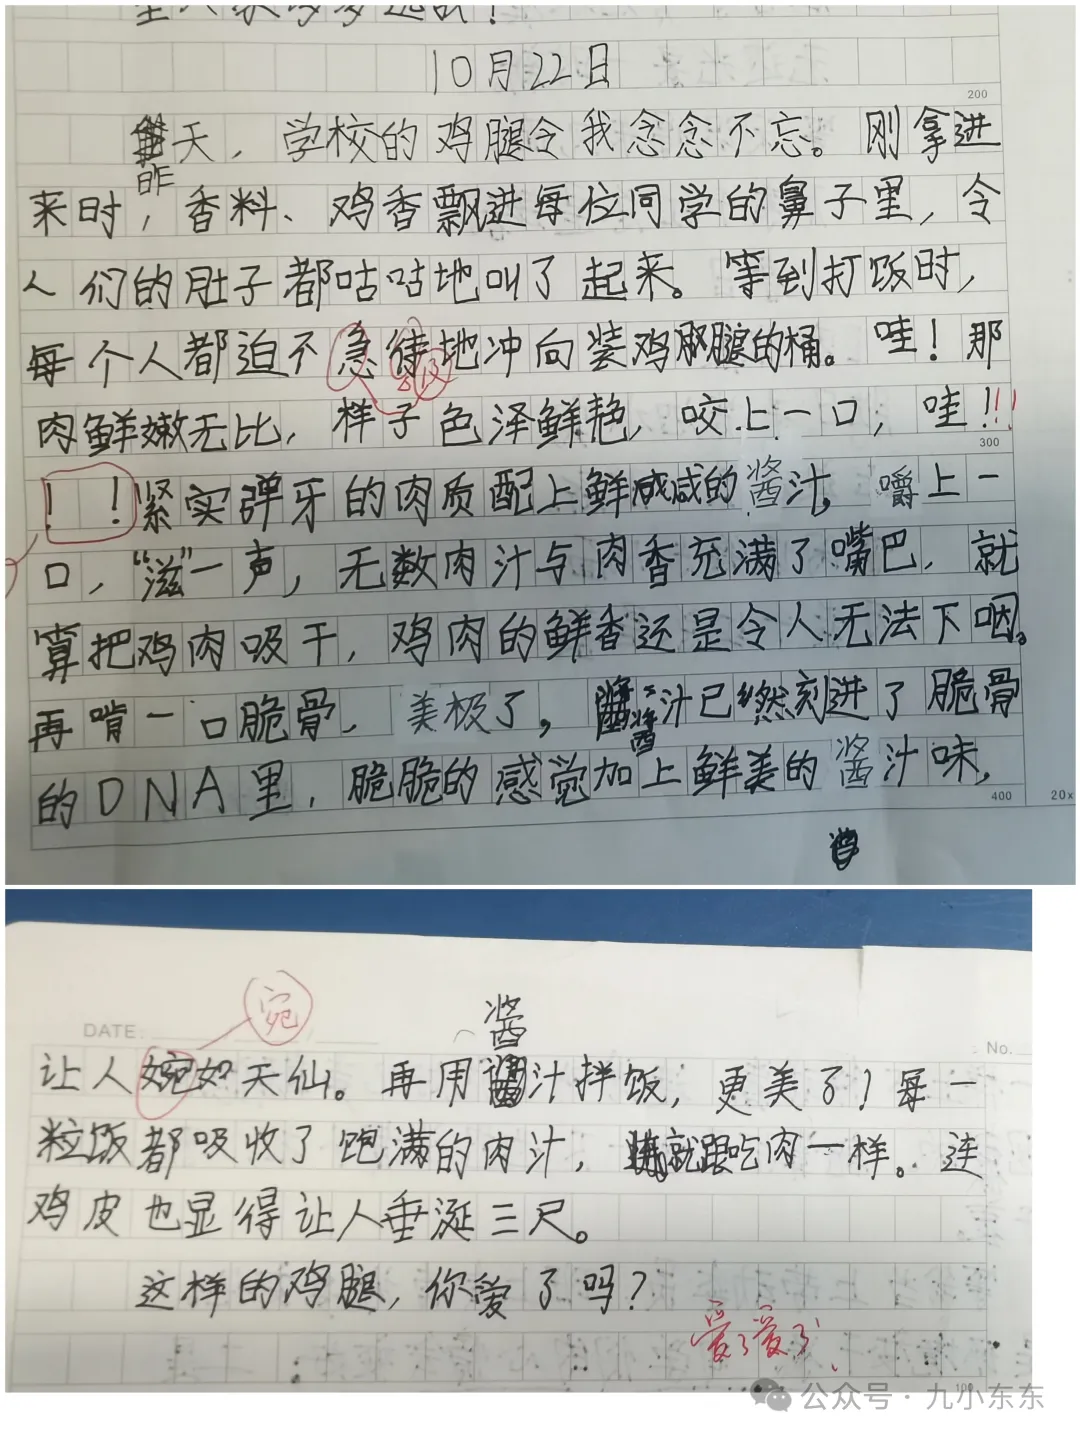 10月22日
200
昨天，学校的鸡腿令我念念不忘。刚拿进
来时，香料、鸡香飘进每位同学的鼻子里，令
人们的肚子都咕咕地叫了起来。等到打饭时，
每个人都迫不急待地冲向装鸡腿的桶。哇！那
及
肉鲜嫩无比，样子色泽鲜艳，咬上一口，哇！！！
300
！！紧实弹牙的肉质配上鲜咸咸的酱汁，嚼上一
口，“滋”一声，无数肉汁与肉香充满了嘴巴，就
算把鸡肉吸干，鸡肉的鲜香还是令人无法下咽。
再啃一口脆骨，美极了，酱汁已然刻进了脆骨
的DNA里，脆脆的感觉加上鲜美的酱汁味，
400
20x
宛
DATE:
No.
让人婉如天仙。再用酱汁拌饭，更美了！每一
粒饭都吸收了饱满的肉汁，就跟吃肉一样。连
鸡皮也显得让人垂涎三尺。
这样的鸡腿，你爱了吗？
爱了爱了！
100
公众号·九小东东